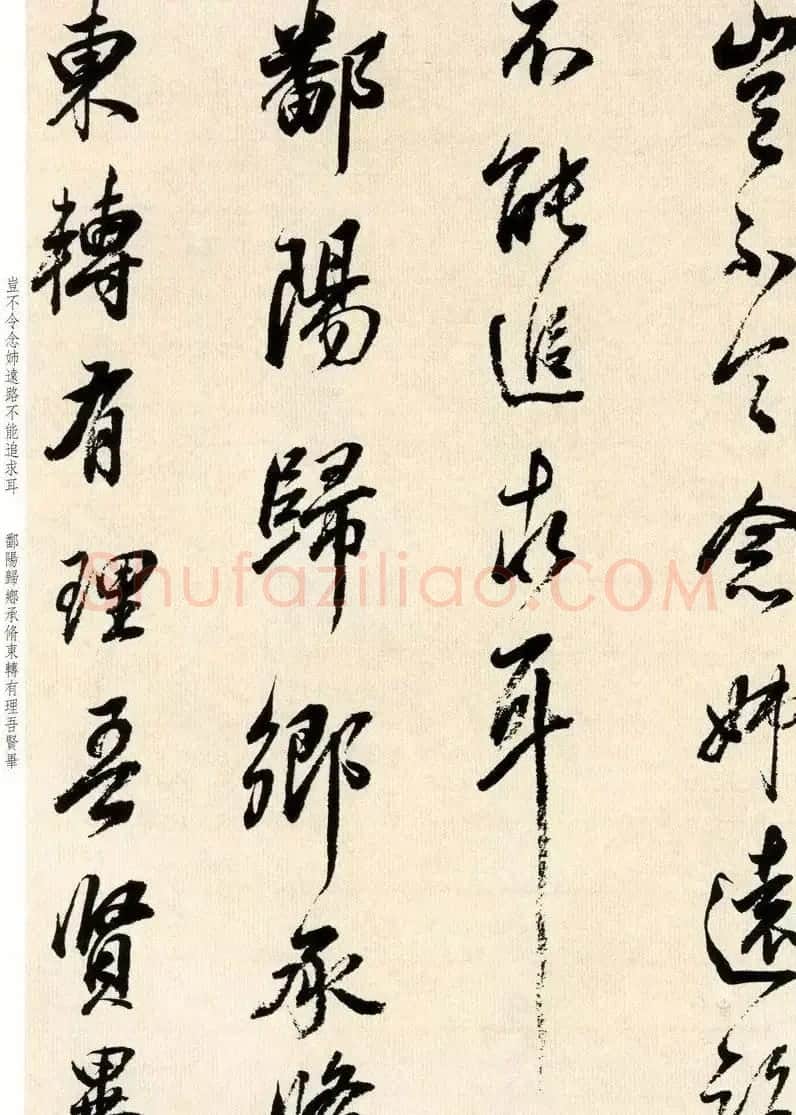 豈不令念姊遠路
不能追求耳
鄱陽歸鄉承脩
東轉有理吾賢畢
豈不令念姊遠路不能追求耳 鄱陽歸鄉承脩東轉有理吾賢畢
Shufaziliao.COM